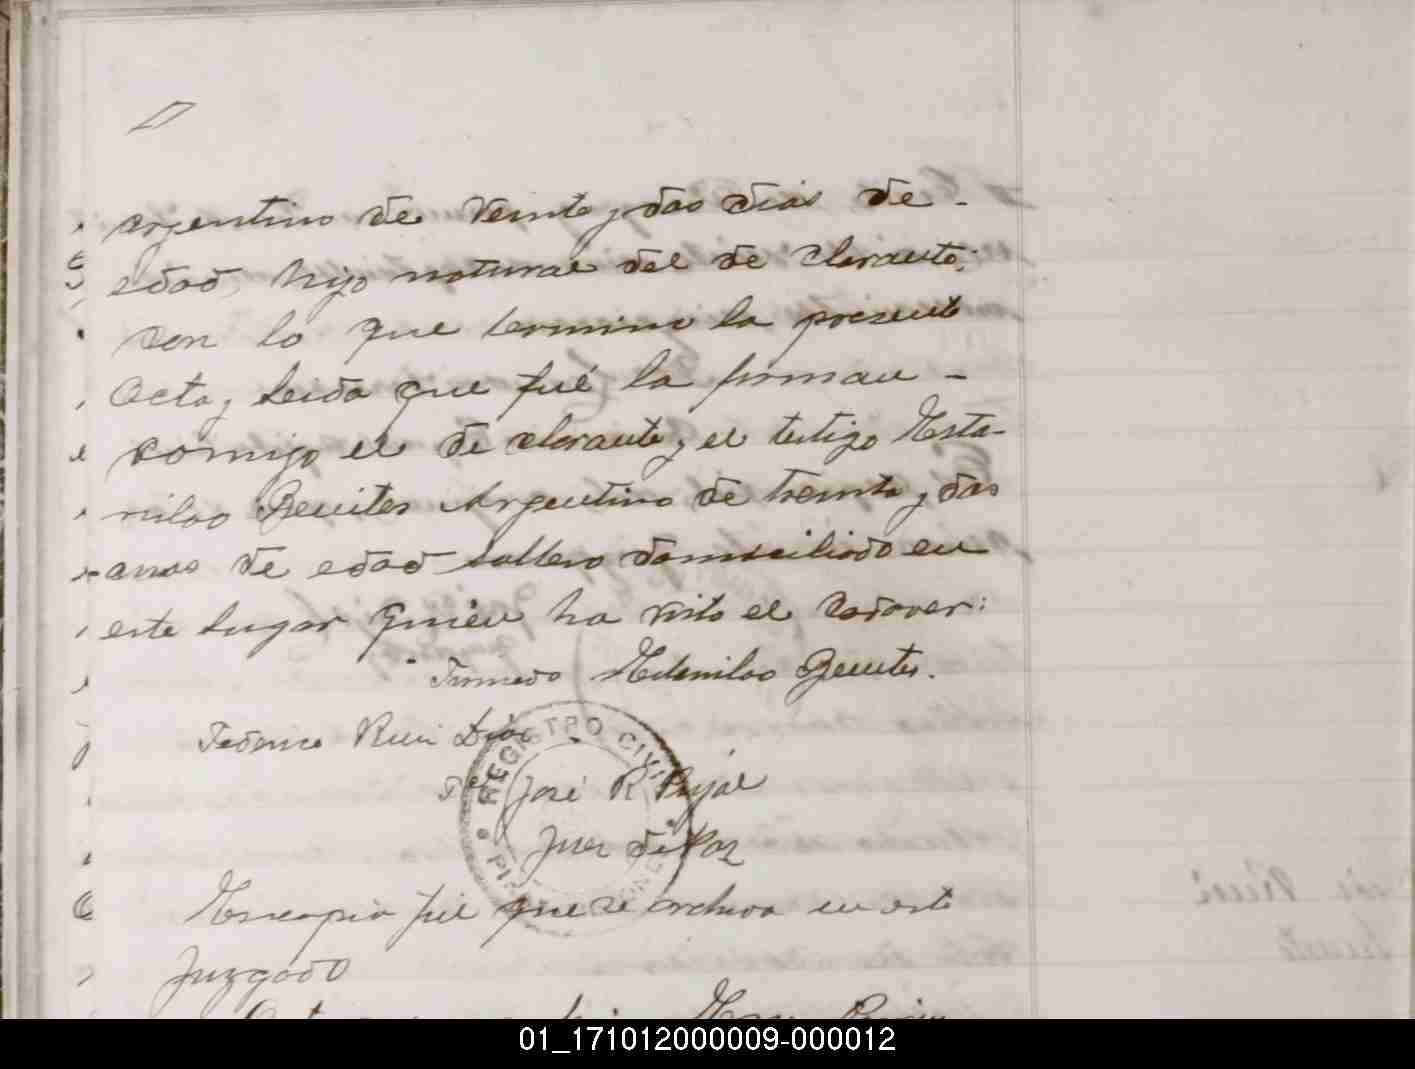 argentino de veinte y dos dias de -
edad, hijo natural del de clarante;
con lo que termino la presente
Acta, leida que fué la firman -
comigo el de clarante, y el testigo Esta-
nilao Benites Argentino de treinta y dos
anos de edad soltero domiciliado en
este lugar quien ha visto el cadaver:
Firmado Estanilao Benites.
Federico Ruiz Diás
José R Pujal
Juez de Paz
REGISTRO CIVIL
Es copia fiel que se archiva en este
Juzgado
01_171012000009-000012